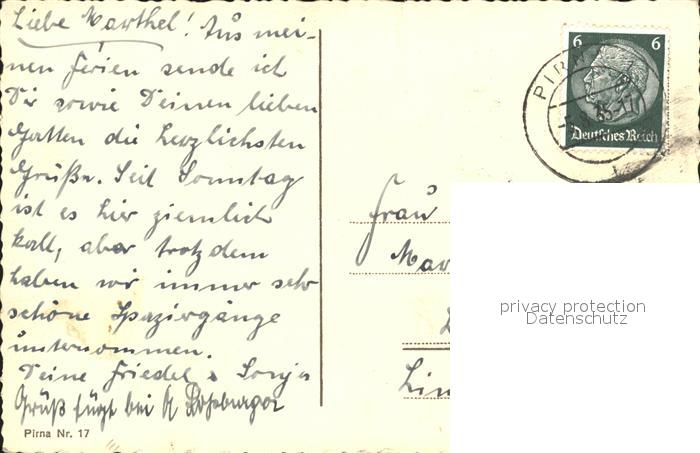 Liebe Marthel! Aus mei-
nen Ferien sende ich
Dir sowie Deinen lieben
Gatten die herzlichsten
Grüße. Seit Sonntag
ist es hier ziemlich
kalt, aber trotzdem
haben wir immer sehr
schöne Spaziergänge
unternommen.
Deine Friedel & Sonja
Grüß fügt bei
Pirna Nr. 17
6 6
Deutsches Reich
PIRN
35-17
Frau
Mar
Lin
privacy protection
Datenschutz